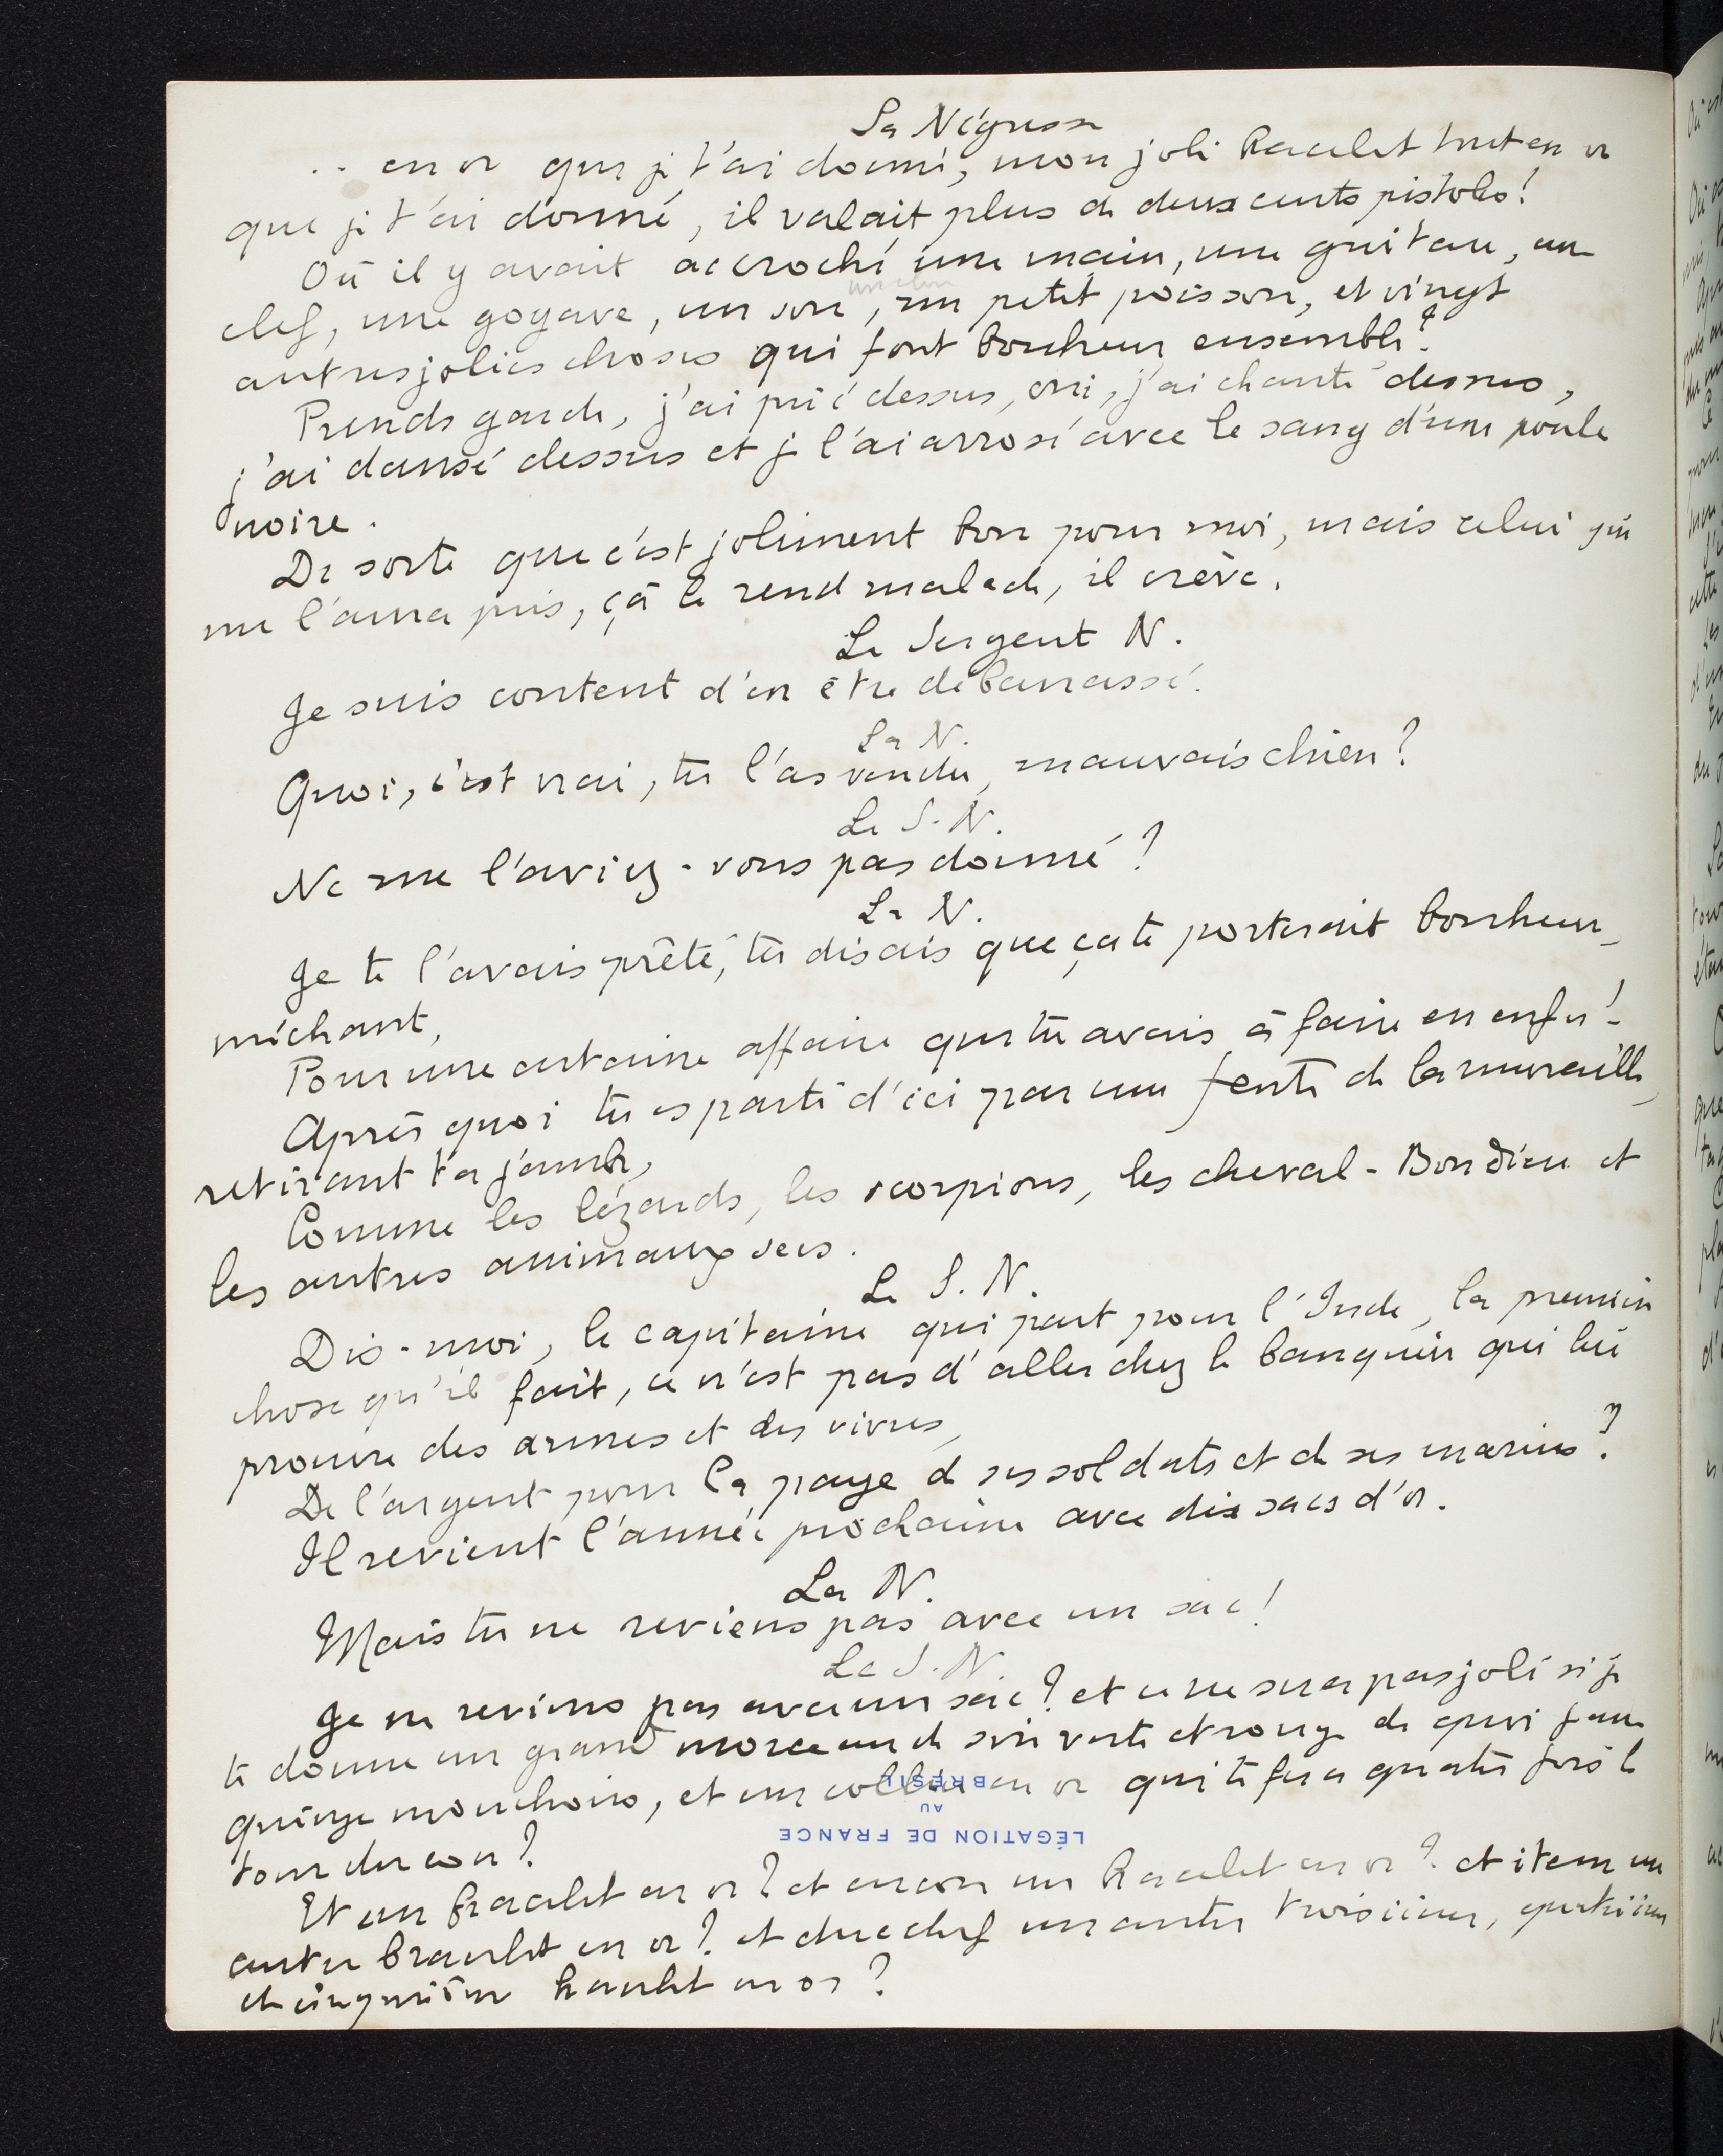 La Négresse
.. en or que je t'ai donné, mon joli bracelet tout en or
que je t'ai donné, il valait plus de deux cents pistoles!
Où il y avait accroché une main, une guitare, une
clef, une goyave, un sou, un petit poisson, et vingt
autres jolies choses qui font bonheur ensemble?
Prends garde, j'ai prié dessus, oui, j'ai chanté dessus,
j'ai dansé dessus et je l'ai arrosé avec le sang d'une poule
noire.
De sorte que c'est joliment bon pour moi, mais celui qui
me l'aura pris, çà le rend malade, il crève.
Le Sergent N.
Je suis content d'en être débarrassé.
La N.
Quoi, c'est vrai, tu l'as vendu, mauvais chien?
Le S. N.
Ne me l'aviez-vous pas donné?
La N.
Je te l'avais prêté, tu disais que ça te porterait bonheur,
méchant,
Pour une certaine affaire que tu avais à faire en enfer!
Après quoi tu es parti d'ici par une fente de la muraille,
retirant ta jambe,
Comme les lézards, les scorpions, les cheval-Bondieu et
les autres animaux secs.
Le S. N.
Dis-moi, le capitaine qui part pour l'Inde, la première
chose qu'il fait, ce n'est pas d'aller chez le banquier qui lui
procure des armes et des vivres,
De l'argent pour la paye de ses soldats et de ses marins?
Il revient l'année prochaine avec dix sacs d'or.
La N.
Mais tu ne reviens pas avec un sac!
Le S. N.
Je ne reviens pas avec un sac? et ce ne sera pas joli si je
te donne un grand morceau de soie verte et rouge de quoi faire
quinze mouchoirs, et un collier en or qui te fera quatre fois le
tour du cou?
Et un bracelet en or? et encore un bracelet en or? et item un
autre bracelet en or? et derechef un autre troisième, quatrième
et cinquième bracelet en or?
LÉGATION DE FRANCE
AU
BRÉSIL